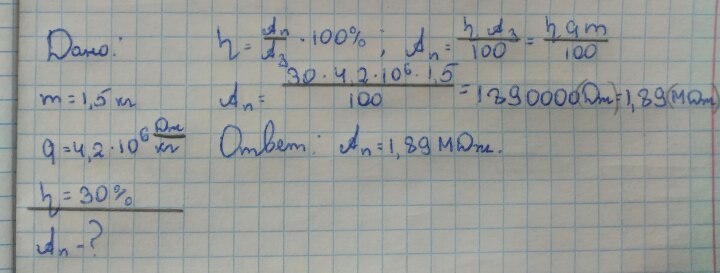 Дано:
m = 1,5 кг
q = 4,2 · 10⁶ Дж/кг
η = 30%
Aп - ?
η = Aп/Aз · 100% ; Aп = η Aз/100 = η q m/100
Aп = 30 · 4,2 · 10⁶ · 1,5/100 = 1890000 (Дж) = 1,89 (МДж)
Ответ: Aп = 1,89 МДж.